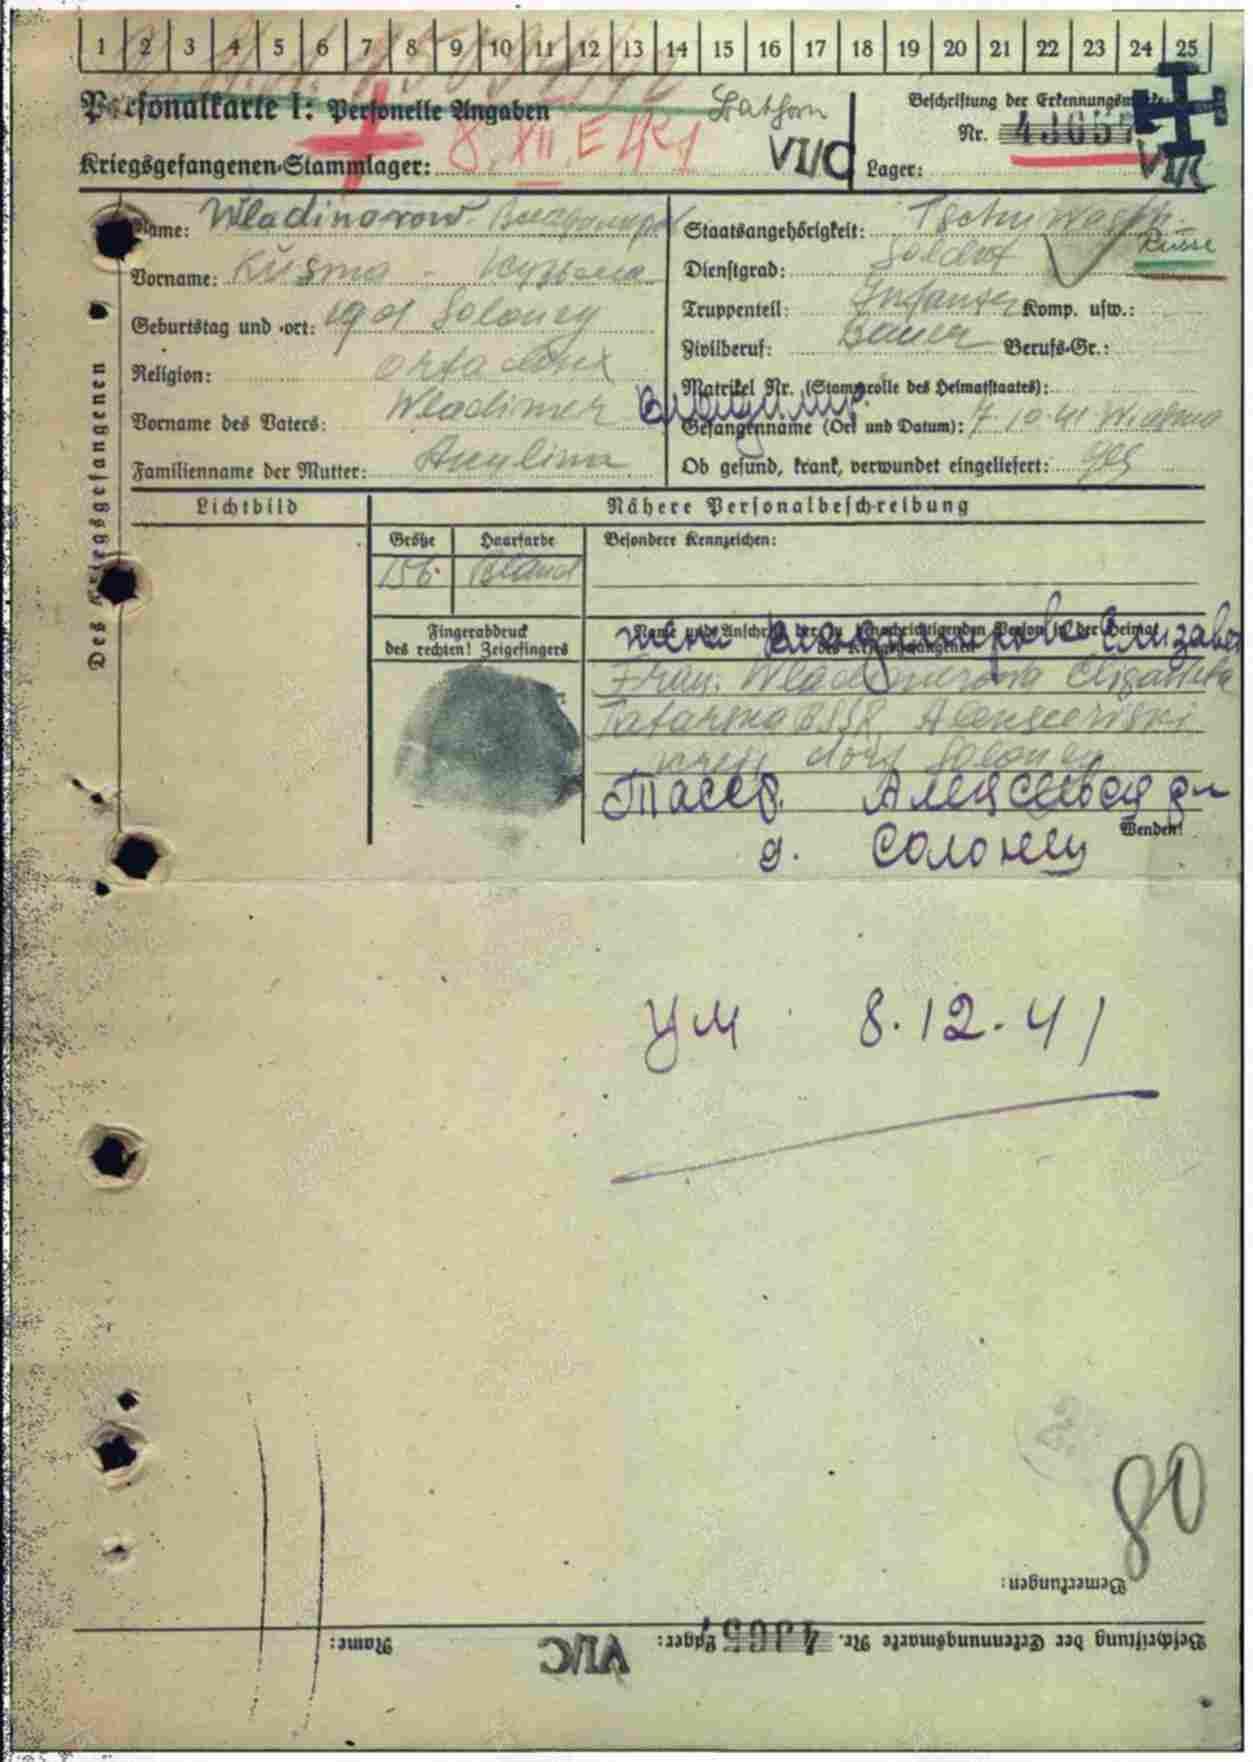 1 2 3 4 5 6 7 8 9 10 11 12 13 14 15 16 17 18 19 20 21 22 23 24 25
Personalkarte I: Personelle Angaben
Bathorn
Beschriftung der Erkennungsmarke
Nr.
Kriegsgefangenen-Stammlager: 8. XII. E 41
VI/C
Lager: VI/C
Des Kriegsgefangenen
Name: Wladimorow
Staatsangehörigkeit:
Russe
Vorname: Kusma - Кузьма
Dienstgrad: Soldat
Geburtstag und -ort: 1901 Soloney
Truppenteil: Infanter Komp. usw.:
Zivilberuf: Bauer Berufs-Gr.:
Religion: ortadox
Matrikel Nr. (Stammrolle des Heimatstaates):
Vorname des Vaters: Wladimer Владимир
Gefangennahme (Ort und Datum): 7.10.41 Wiasma
Familienname der Mutter: Akulina
Ob gesund, krank, verwundet eingeliefert: ges
Lichtbild
Nähere Personalbeschreibung
Größe Haarfarbe Besondere Kennzeichen:
156. Bland
Fingerabdruck
des rechten! Zeigefingers
Name und Anschrift der zu benachrichtigenden Person in der Heimat
des Kriegsgefangenen
жена Владимирова Елизавет
Frau. Wladimirowa Elisaweta
Tatarska SSR
kreis dorf Soloney
д. Солонец
Wenden!
ум 8.12.41
80
Bemerkungen:
Beschriftung der Erkennungsmarke Nr. Lager: VI/C Name: